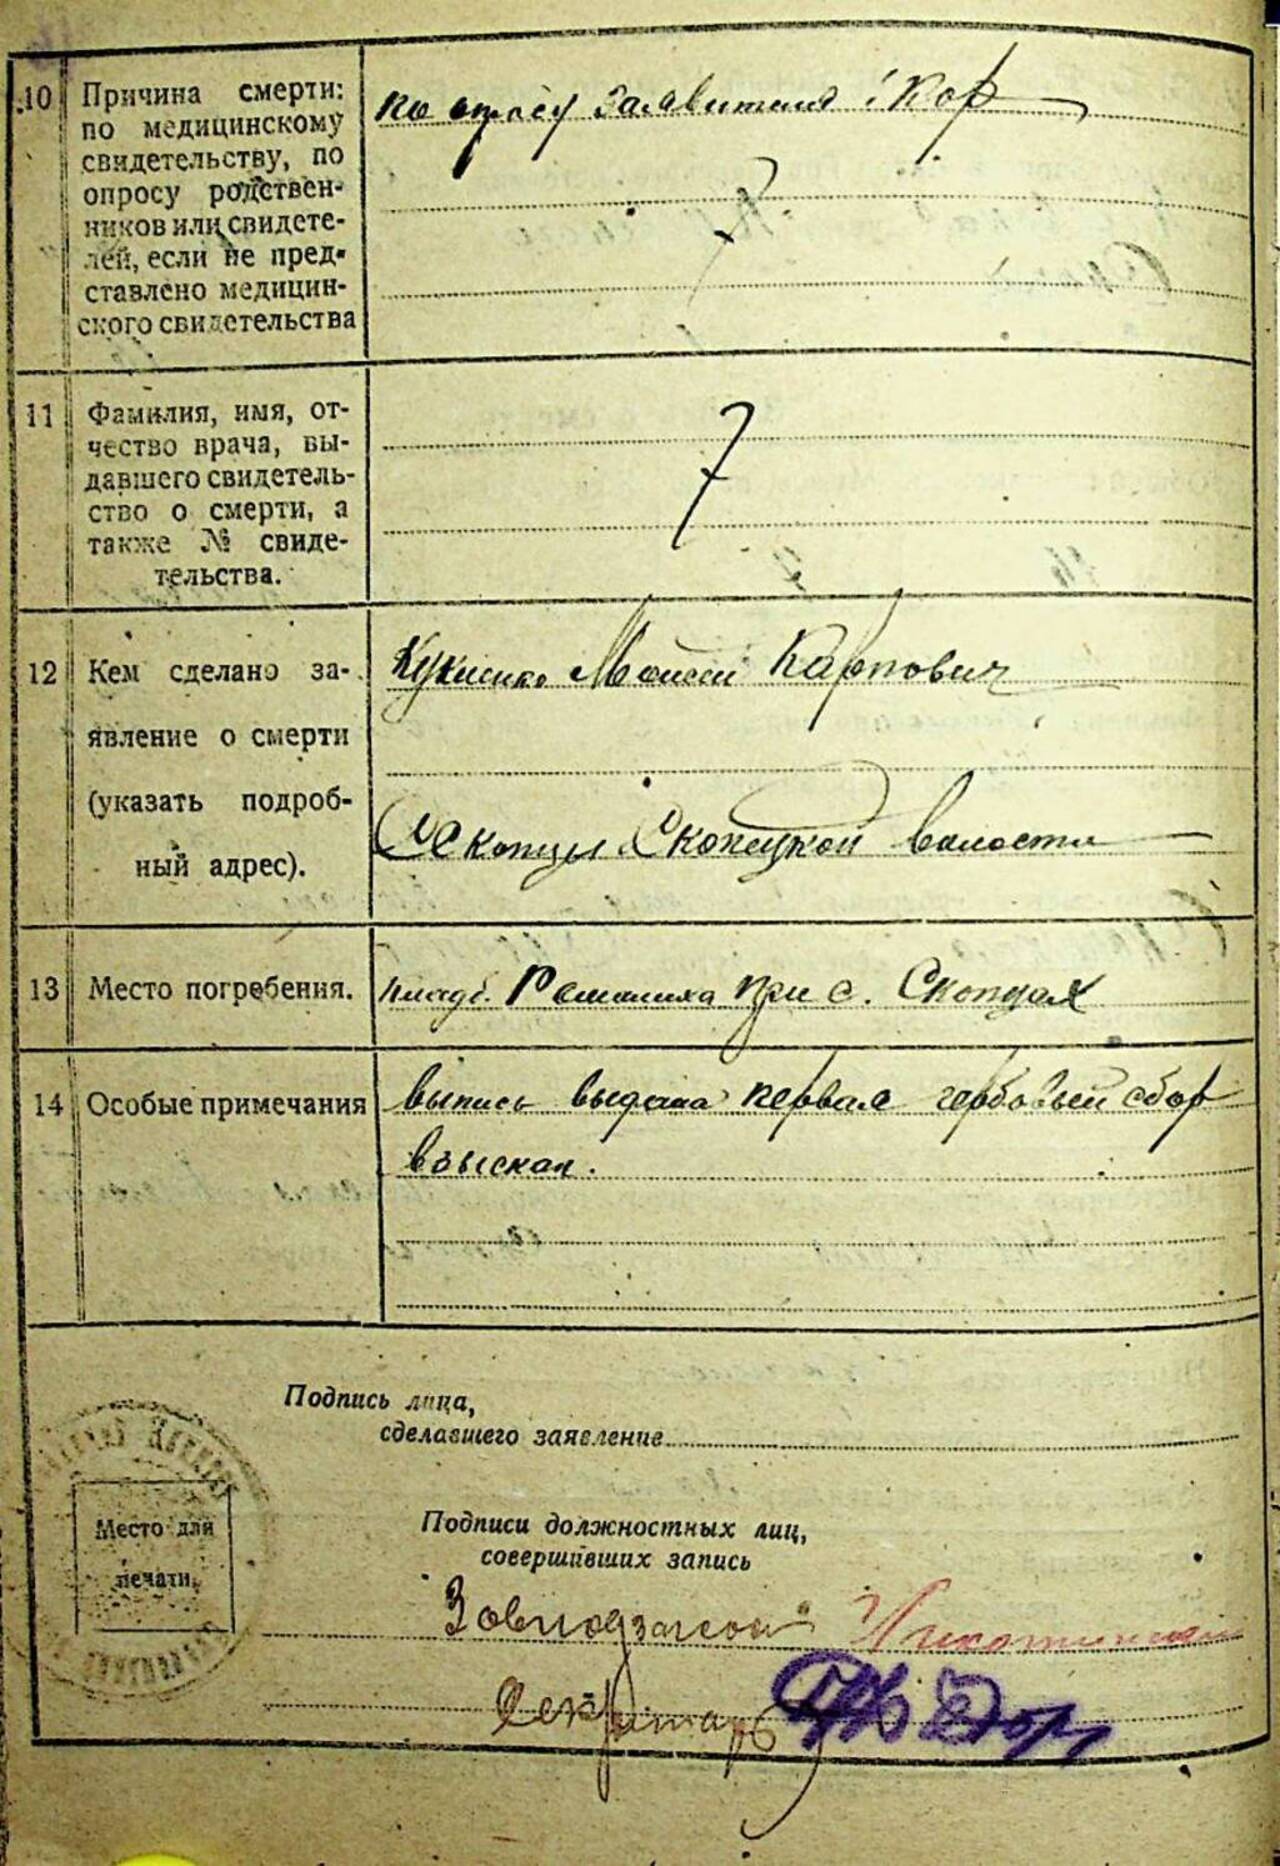 10 Причина смерти:
по медицинскому
свидетельству, по
опросу родствен-
ников или свидете-
лей, если не пред-
ставлено медицин-
ского свидетельства
по опросу заявителя : Кор
11 Фамилия, имя, от-
чество врача, вы-
давшего свидетель-
ство о смерти, а
также № свиде-
тельства.
12 Кем сделано за-
явление о смерти
(указать подроб-
ный адрес).
Моисей Карпович
Скопцы Скопецкой волости
13 Место погребения.
кладб. при с. Скопцах
14 Особые примечания
выпись выдана первая гербовый сбор
взыскан.
Подпись лица,
сделавшего заявление
Место для
печати.
Подписи должностных лиц,
совершивших запись
Завподзагсом
Секретарь